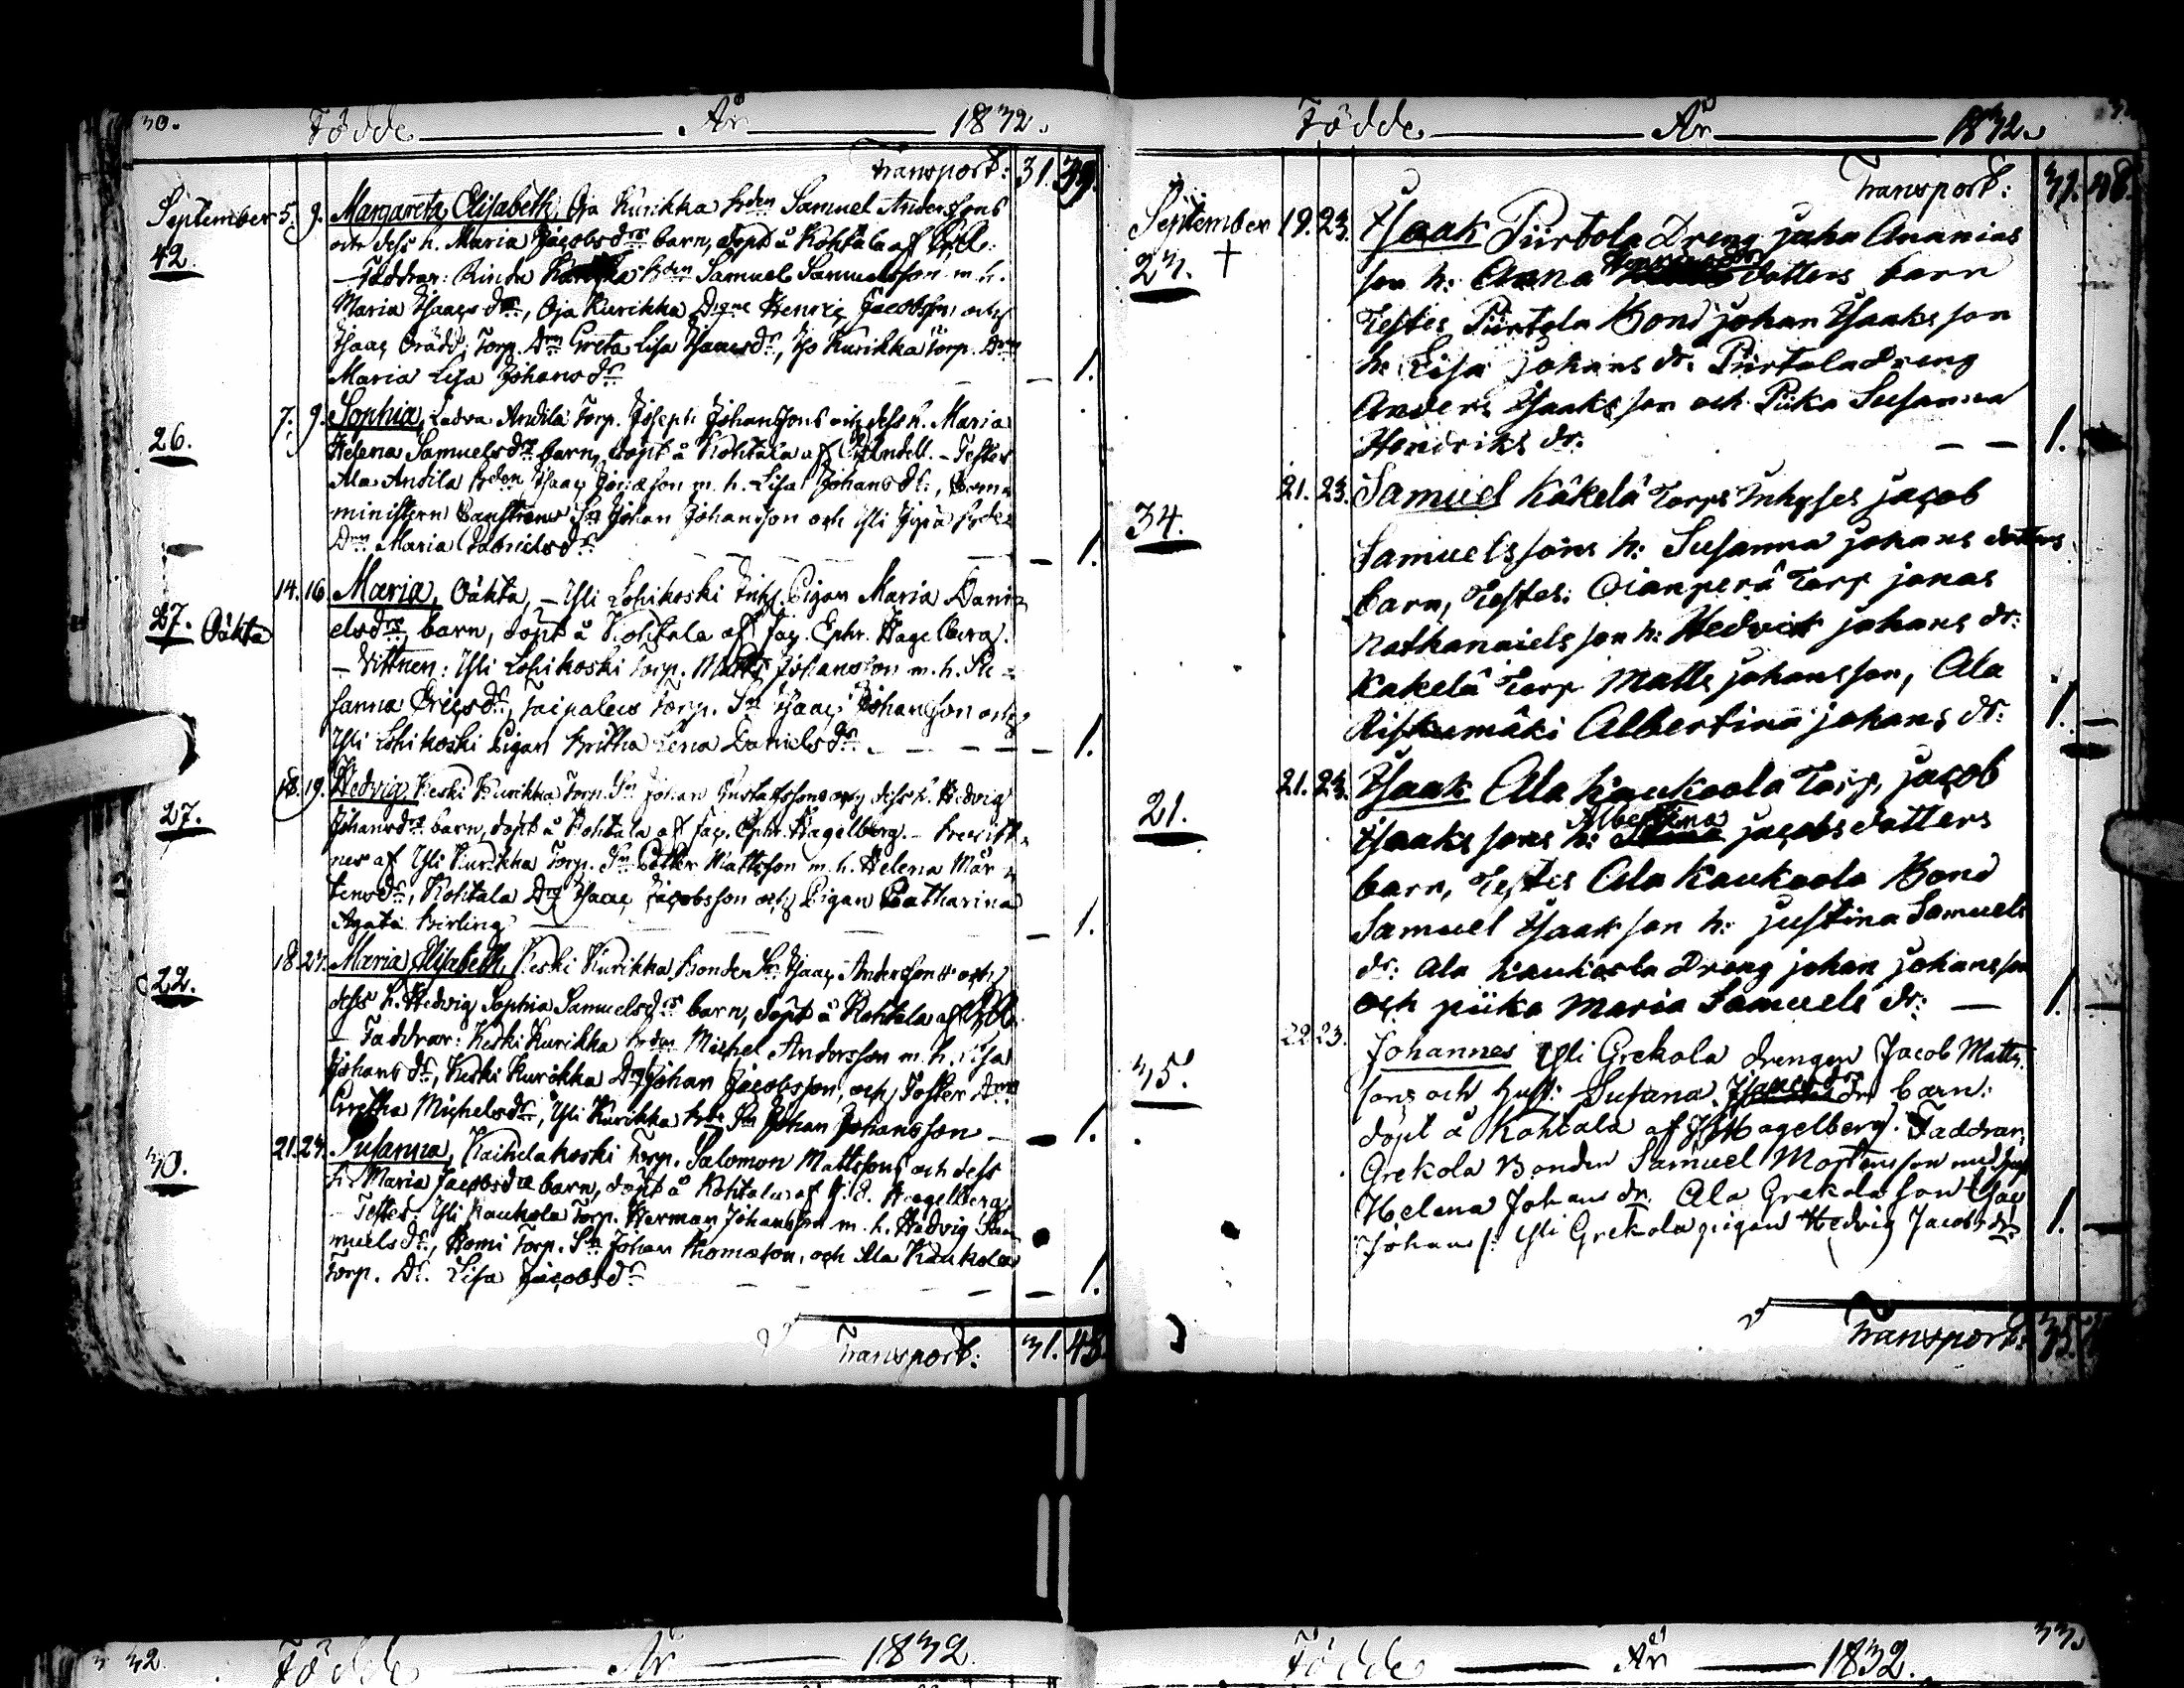 30. Födde År 1832.
Transport: 31. 39.
September 5. 9. Margareta Elisabeth, Oja Kurikka Bden Samuel Anderssons
42. och dess h. Maria Jacobsdrs barn, döpt å Kohtala af
Faddrar: Rinda Bden Samuel Samuelsson m. h.
Maria Isaacs dr, Oja Kurikka Drgne Henric Jacobsson och
Isaac Torp. Drn Greta Lisa Isaacsdr, Iso Kurikka Torp. Drn
Maria Lisa Johansdr — 1.
26. 7. 9. Sophia, Ladva Andila Torp. Joseph Johanssons och dess h. Maria
Helena Samuelsdrs barn, döpt å Kohtala af – Testes
Ala Andila Bden Isaac m. h. Lisa Johansdr,
Sn Johan Johansson och Yli
Drn Maria Gabrielsdr — 1.
27. Oäkta 14. 16. Maria, Oäkta, – Yli Lohikoski Inhs. Pigan Maria Dani-
elsdrs barn, döpt å Kohtala af Jac. Ephr. Hagelberg.
– Vittnen: Yli Lohikoski Torp. Matts Johansson m. h. Su-
sanna Ericsdr, Taipaleus Torp. Sn Isaac Johansson och
Yli Lohikoski Pigan Britha Lena Danielsdr — 1.
27. 18. 19. Hedvig, Keski Kurikka Torp. Sn Johan Gustafssons och dess h. Hedvig
Johansdrs barn, döpt å Kohtala af Jac. Ephr. Hagelberg. –
af Yli Kurikka Torp. Sn Petter Mattsson m. h. Helena Mår-
tensdr, Kohtala Drg Isaac Jacobsson och Pigan Catharina
Agata Birling — 1.
22. 18. 24. Maria Elisabeth, Keski Kurikka Bonden Sn Isaac Anderssons och
dess h. Hedvig Sophia Samuelsdrs barn, döpt å Kohtala af
– Faddrar: Keski Kurikka Bden Michel Andersson m. h. Lisa
Johansdr, Keski Kurikka Drg Johan Jacobsson, och Foster Drn
Gretha Michelsdr, Yli Kurikka Bde Sn Johan Johansson — 1.
30. 21. 24. Susanna, Kaihelakoski Torp. Salomon Mattssons och dess
h. Maria Jacobsdrs barn, döpt å Kohtala af J. E. Hagelberg
– Testes: Yli Kaukola Torp. Herman Johansson m. h. Hedvig Sa-
muelsdr, Homi Torp. Sn Johan Thomason, och Ala Kaukola
Torp. Dr. Lisa Jacobsdr — 1.
Transport: 31. 45
Födde År 1832.
Transport: 31. 48.
September 19. 23. Isaak Piirtola Dreng Juha Ananias
+ son h: Anna dotters barn
Testes Piirtola Bond johan Isaaksson
h: Lisa johans dr: Piirtola Dreng
Anders Isaaksson och Piika Susanna
Hendriks dr: — — 1.
34. 21. 23. Samuel Käkelä Torps Inhyses jacob
Samuelssons h: Susanna johans dotters
barn, Testes: Torp jonas
nathanaielsson h: Hedvik johans dr:
Käkelä Torp Matts johansson, Ala
Riskumäki Albertina johans dr: 1. —
21. 21. 23. Isaak Ala Kaukoola Torp. jacob
Albertina
Isaakssons h: jacobsdotters
barn, Testes Ala Kaukoola Bond
Samuel Isaaksson h: justina Samuels
dr: Ala Kaukoola Dreng johan johansson
och piika Maria Samuels dr: — 1. —
35. 22. 23. Johannes Yli Grekola drengen Jacob Matts-
sons och hust: Susana Isaacs dr barn:
döpt å Kohtala af J E Hagelberg. Faddrar,
Grekola Bonden Samuel Mortensson med hust
Helena Johans dr. Ala Grekola son Isac
Johans s: Yli Grekola pigan Hedvig Jacobs dr 1. —
Transport: 35.
32. Födde År 1832.
Födde År 1832. 33.